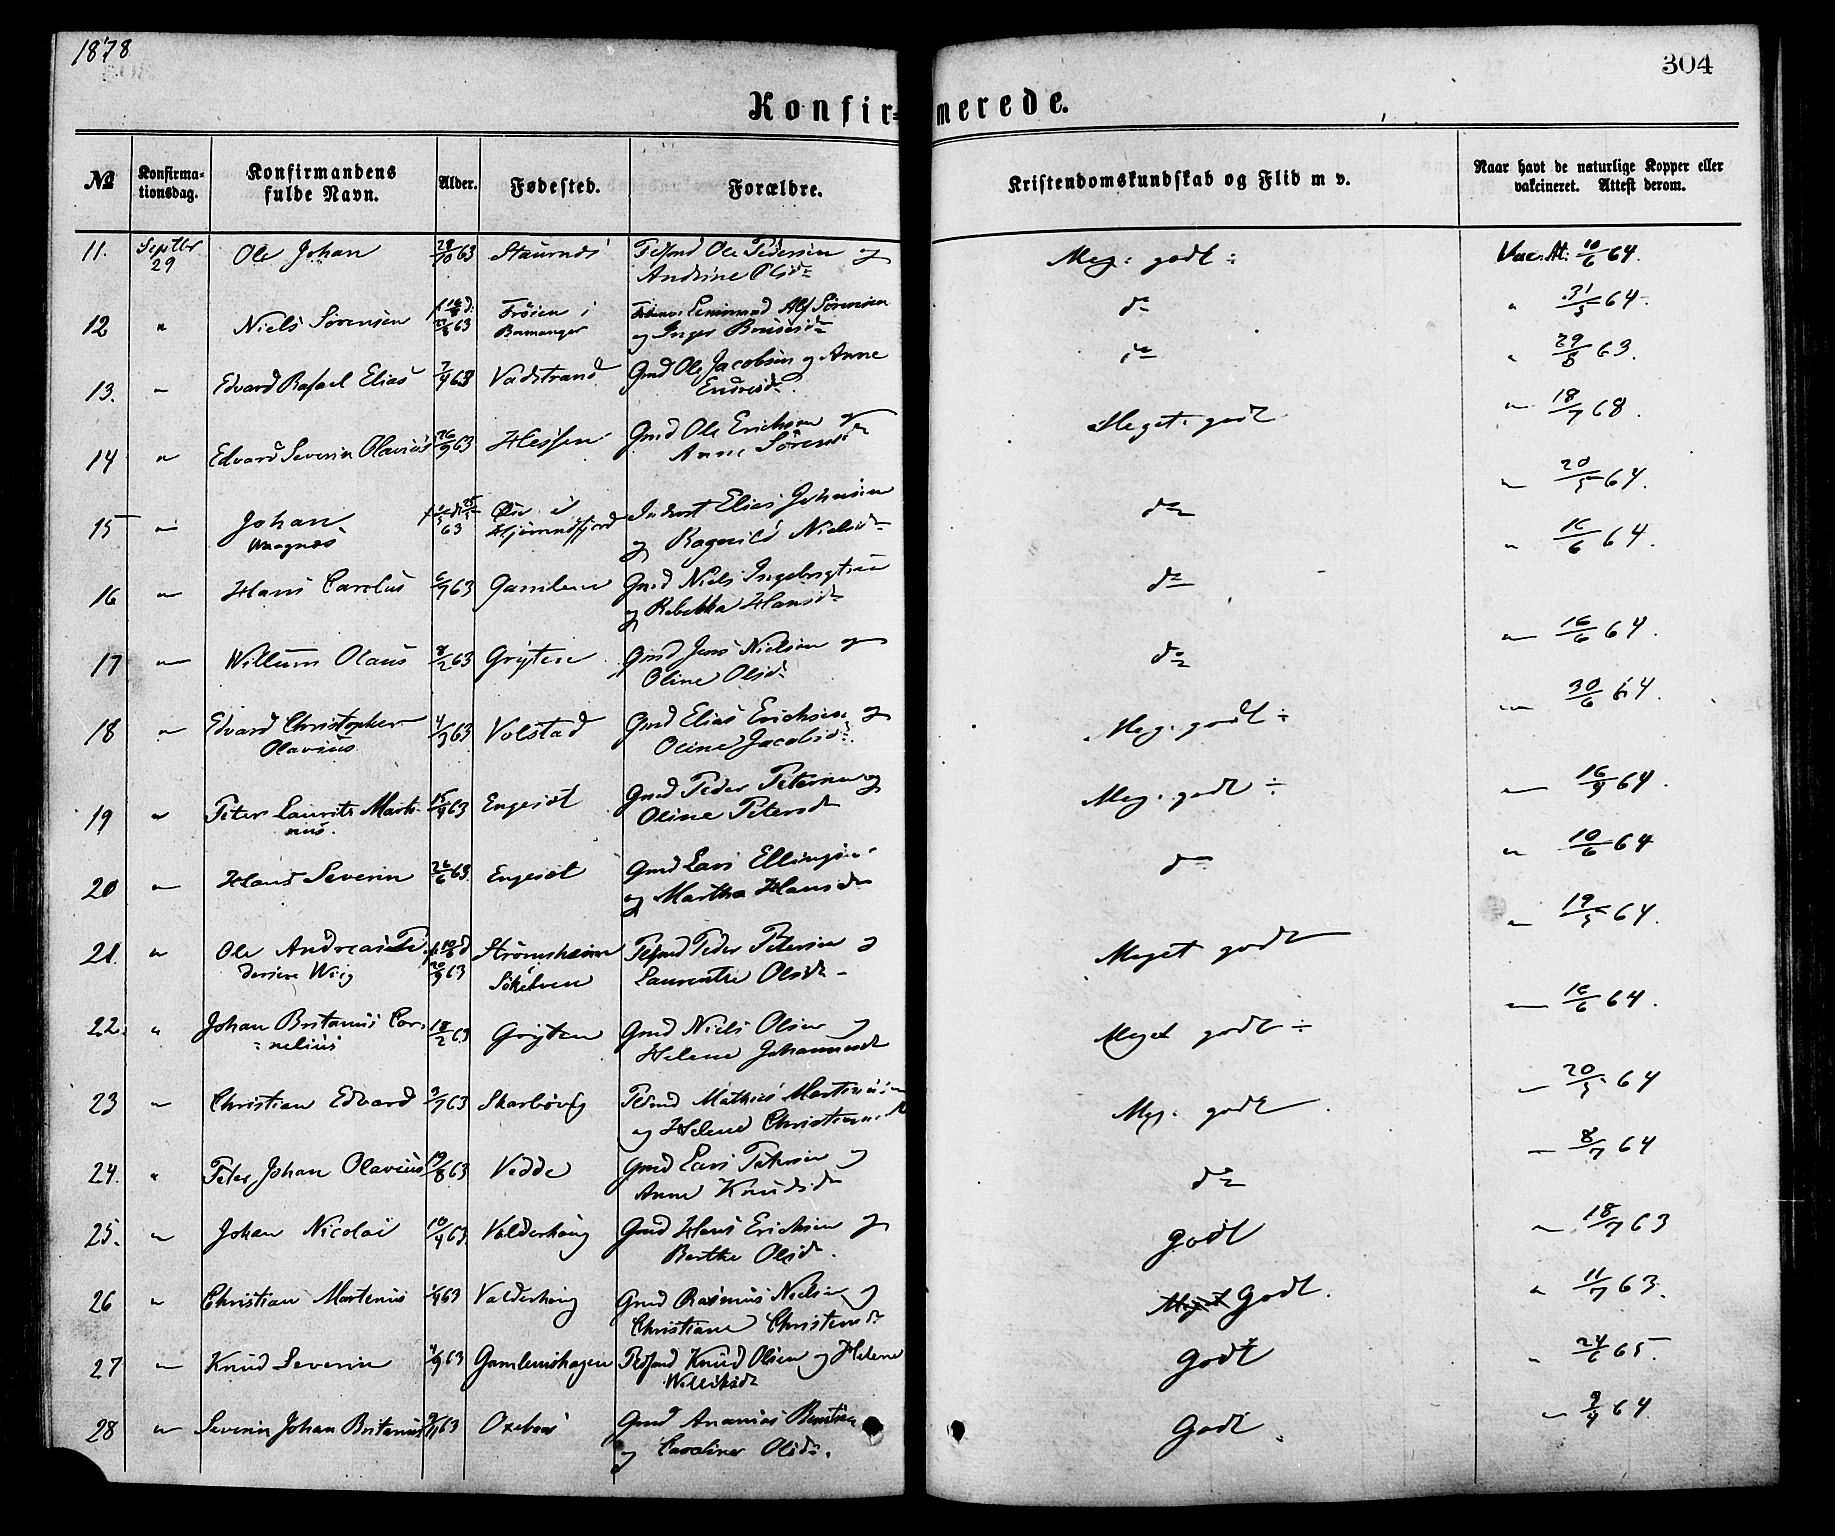 1878
304
Konfir-merede.
№ Konfirma-tionsdag. Konfirmandens fulde Navn. Alder. Fødested. Forældre. Kristendomskundskab og Flid m v. Naar havt de naturlige Kopper eller vakcineret. Attest derom.
11. Septbr 29 Ole Johan 28/10 63 Staurnes Pedersen og Meg: godt ÷ Vac. At: 10/6 64.
Andrine Olsd
12 " Niels Sørensen 63 Frøien i Alf Sørensen do " 31/5 64.
Bremanger og Inger
13. " Edvard Rafael Elias 7/4 63 Vadstrand Gmd Ole Jacobsen og Anne do " 29/8 63.
Endresd
14 " Edvard Severin Olavius 26/9 63 Hessen Gmd Ole Erichsen og Meget godt " 18/7 68.
Anne Sørensd
15 " Johan 63 i Hjørundfjord Inderst Elias Johnsen do " 20/5 64.
Magnus og Ragnild Nielsd
16 " Hans Carolus 6/7 63 Gamlem Gmd Niels Ingebrigtsen do " 16/6 64.
og Rebekka Hansd
17 " Willum Olaus 8/2 63 Grytten Gmd Jens Nielsen og do " 16/6 64.
Oline Olsd
18 " Edvard Christopher 4/3 63 Volstad Gmd Elias Erichsen og Meg. godt ÷ " 30/6 64.
Olavius Oline Jacobsd
19 " Peter Laurits Marti- 15/4 63 Engeset Gmd Peder Petersen og Meg. godt ÷ " 16/9 64.
nus. Oline Petersd
20 " Hans Severin 26/6 63 Engeset Gmd Lars Ellingsen do " 10/6 64
og Martha Hansd
21. " Ole Andreas Pe- 63 Strømsheim Peder Petersen og Meget godt " 19/5 64.
dersen Wiig Søkelven Laurentse Olsd
22. " Johan Britanus Cor- 18/2 63 Grytten Gmd Niels Olsen og Meget godt ÷ " 16/6 64.
nelius Helene Johannesd
23 " Christian Edvard 9/7 63 Skarbøvig Mathias Martinus Meg. godt " 20/5 64
og Helene Christian
24. " Peter Johan Olavius 63 Vedde Gmd Lars Petersen og do " 8/7 64
Anne Knudsd
25. " Johan Nicolai 10/4 63 Valderhoug Gmd Hans Erichsen og godt " 18/7 63
Berthe Olsd.
26 " Christian Martinus 63 Valderhoug Gmd Rasmus Nielsen og Meget Godt. " 11/7 63.
Christiane Christensd
27 " Knud Severin 63 Gamlemshagen Knud Olsen og Helene Godt " 24/6 65.
28 " Severin Johan Britanus 63 Oxebaas Gmd Ananias Bentsen Godt. " 9/9 64.
og Caroline Olsd.